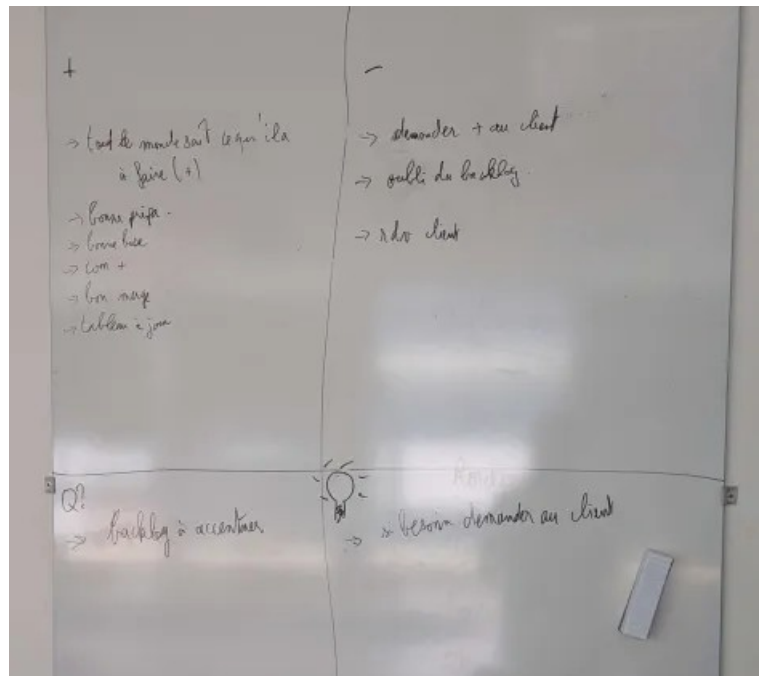 +
→ tout le monde sait ce qu'il a
à faire (+)
→ bonne prépa.
→ bonne base
→ com +
→ bon merge
→ tableau à jour
-
→ demander + au client
→ oubli du backlog
→ rdv client
Q?
→ backlog à accentuer
→ si besoin demander au client